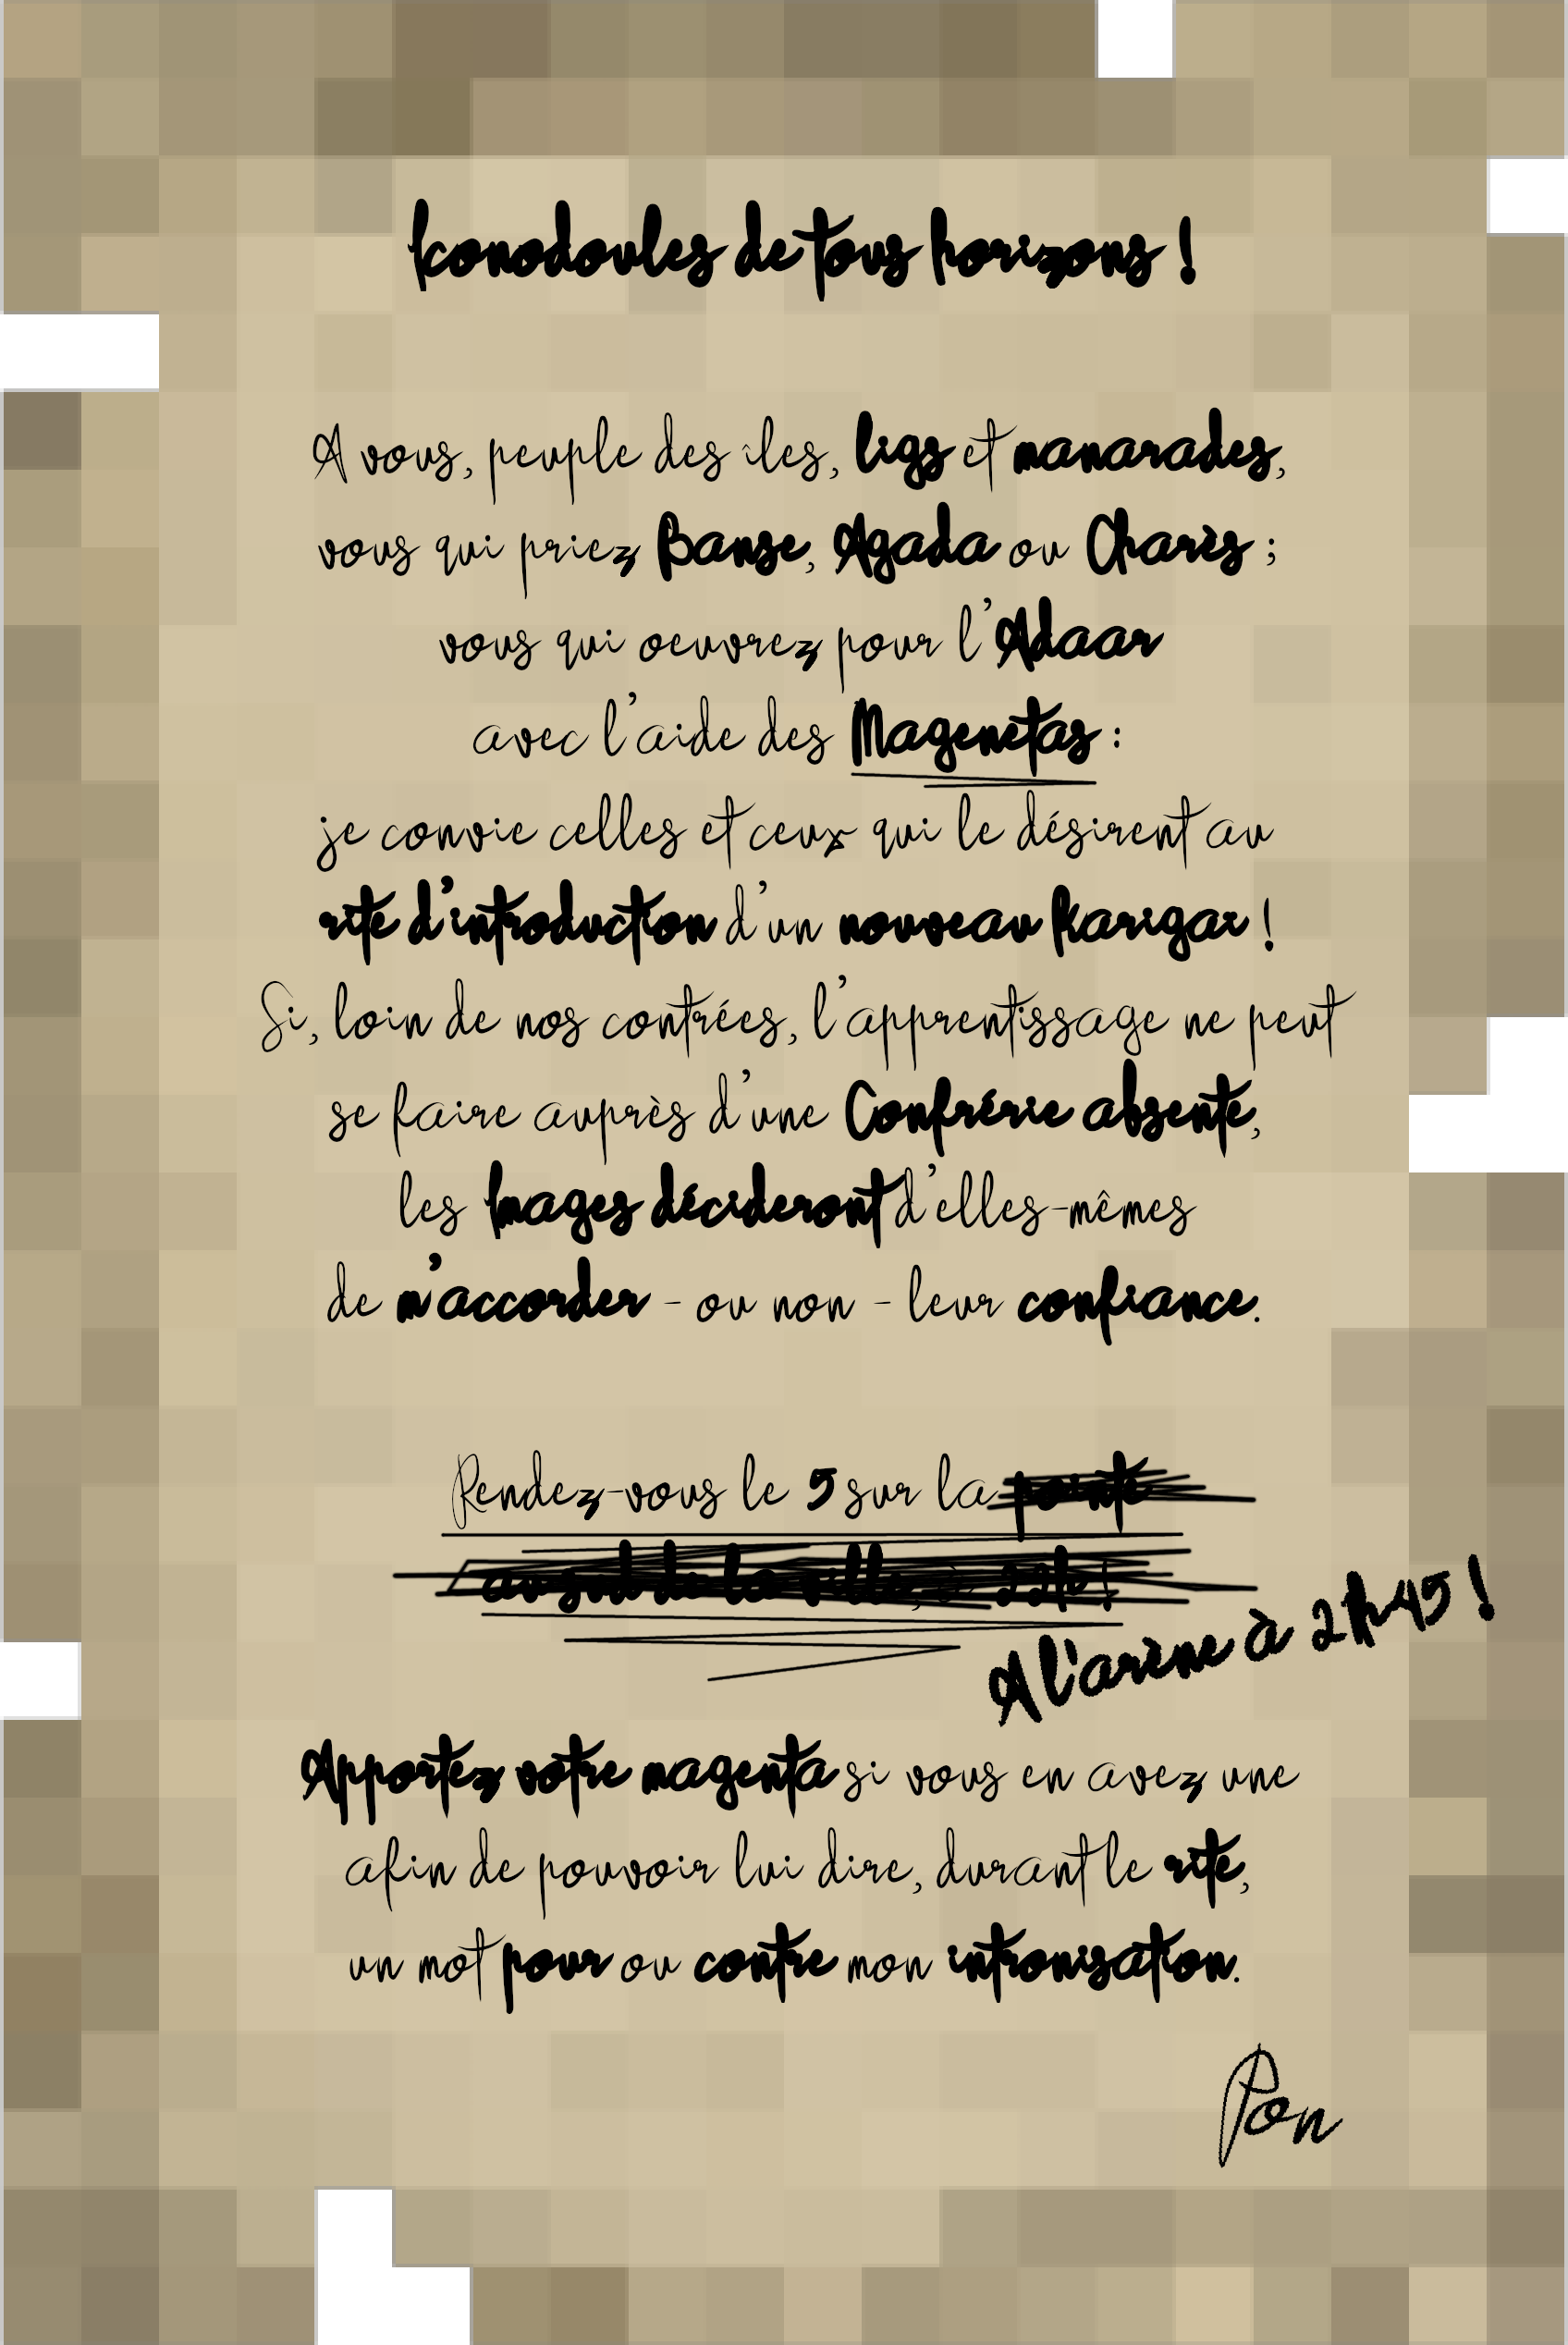 Iconodoules de tous horizons !
A vous, peuple des îles, ligs et manarades,
vous qui priez Banse, Agada ou Charès ;
vous qui oeuvrez pour l'Adaar
avec l'aide des Magenetas :
je convie celles et ceux qui le désirent au
rite d'introduction d'un nouveau Karigai !
Si, loin de nos contrées, l'apprentissage ne peut
se faire auprès d'une Confrérie absente,
les Images décideront d'elles-mêmes
de m'accorder - ou non - leur confiance.
Rendez-vous le 5 sur la pointe
au sud de la ville, à 22h !
A l'arène à 21h45 !
Apportez votre magenta si vous en avez une
afin de pouvoir lui dire, durant le rite,
un mot pour ou contre mon intronisation.
Pon